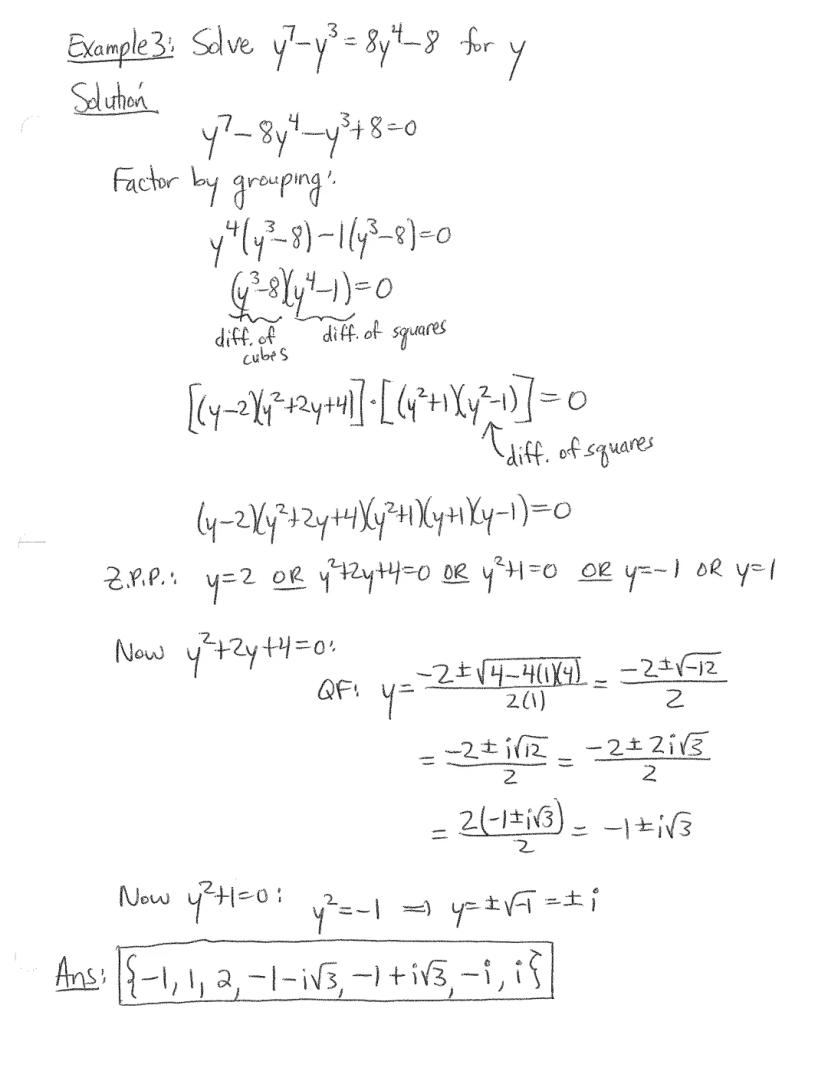 Example 3: Solve y⁷-y³=8y⁴-8 for y
Solution
y⁷-8y⁴-y³+8=0
Factor by grouping:
y⁴(y³-8)-1(y³-8)=0
(y³-8)(y⁴-1)=0
diff. of cubes diff. of squares
[(y-2)(y²+2y+4)]·[(y²+1)(y²-1)]=0
↑ diff. of squares
(y-2)(y²+2y+4)(y²+1)(y+1)(y-1)=0
Z.P.P.: y=2 OR y²+2y+4=0 OR y²+1=0 OR y=-1 OR y=1
Now y²+2y+4=0:
QF: y=(-2±√(4-4(1)(4)))/(2(1)) = (-2±√-12)/2
= (-2±i√12)/2 = (-2±2i√3)/2
= (2(-1±i√3))/2 = -1±i√3
Now y²+1=0: y²=-1 ⇒ y=±√-1=±i
Ans: {-1, 1, 2, -1-i√3, -1+i√3, -i, i}